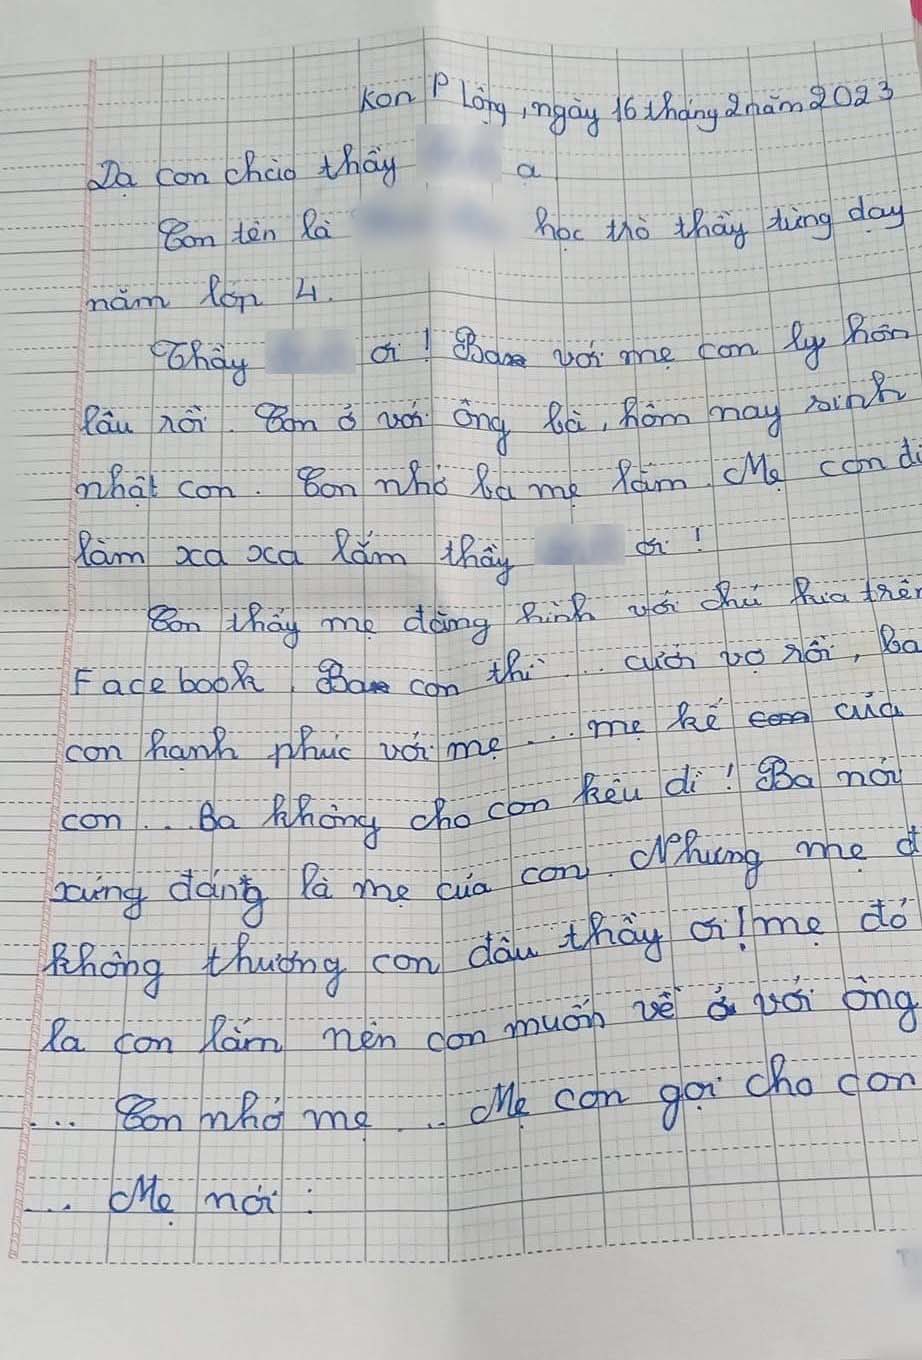 Kon P lông, ngày 16 tháng 2 năm 2023
Dạ con chào thầy ạ
Con tên là học trò thầy từng dạy
năm lớp 4.
Thầy ơi! Ba với mẹ con ly hôn
lâu rồi. Con ở với ông bà, hôm nay sinh
nhật con. Con nhớ ba mẹ lắm. Mẹ con đi
làm xa xa lắm thầy ơi!
Con thấy mẹ đăng hình với chú kia trên
Facebook. Ba con thì... cưới vợ rồi, Ba
con hạnh phúc với mẹ... mẹ kế của
con... Ba không cho con kêu dì! Ba nói
xứng đáng là mẹ của con. Nhưng mẹ đ
không thương con đâu thầy ơi! mẹ đó
la con lắm nên con muốn về ở với ông
... Con nhớ mẹ... Mẹ con gọi cho con
... Mẹ nói: